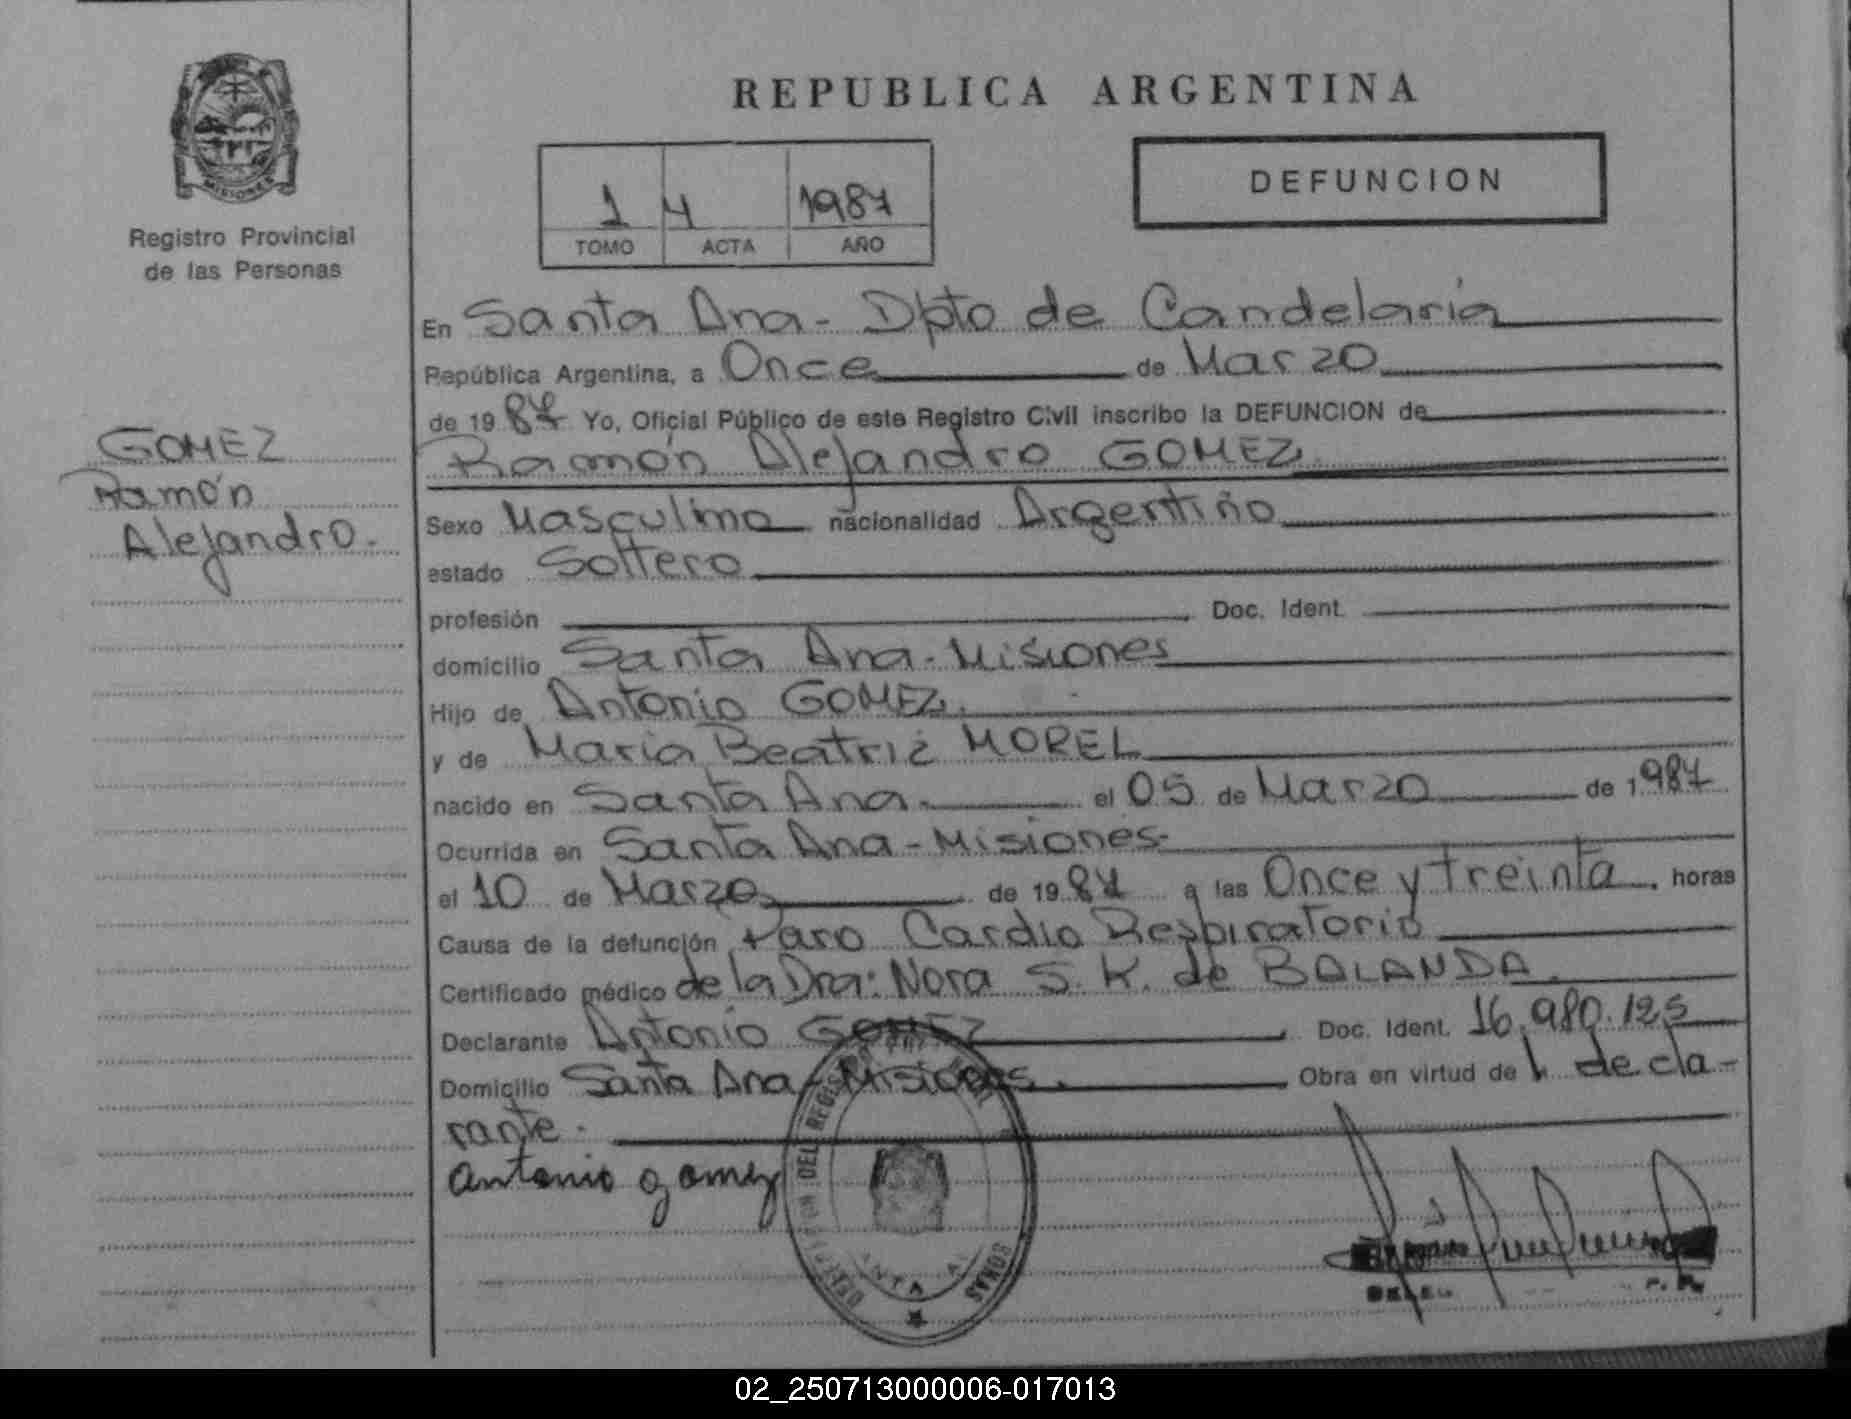 MISIONES
Registro Provincial
de las Personas
GOMEZ
Ramón
Alejandro.
REPUBLICA ARGENTINA
1 4 1987
TOMO ACTA AÑO
DEFUNCION
En Santa Ana - Dpto de Candelaria
República Argentina, a Once de Marzo
de 1987 Yo, Oficial Público de este Registro Civil inscribo la DEFUNCION de
Ramón Alejandro GOMEZ
Sexo Masculino nacionalidad Argentino
estado Soltero
profesión Doc. Ident.
domicilio Santa Ana - Misiones
Hijo de Antonio GOMEZ.
y de Maria Beatriz MOREL
nacido en Santa Ana. el 05 de Marzo de 1987
Ocurrida en Santa Ana - Misiones
el 10 de Marzo de 1987 a las Once y treinta. horas
Causa de la defunción Paro Cardio Respiratorio
Certificado médico de la Dra: Nora S. K. de BALANDA.
Declarante Antonio GOMEZ Doc. Ident. 16.980.125
Domicilio Santa Ana - Misiones. Obra en virtud de decla-
rante.
antonio gomez
DEL REGISTRO
02_250713000006-017013